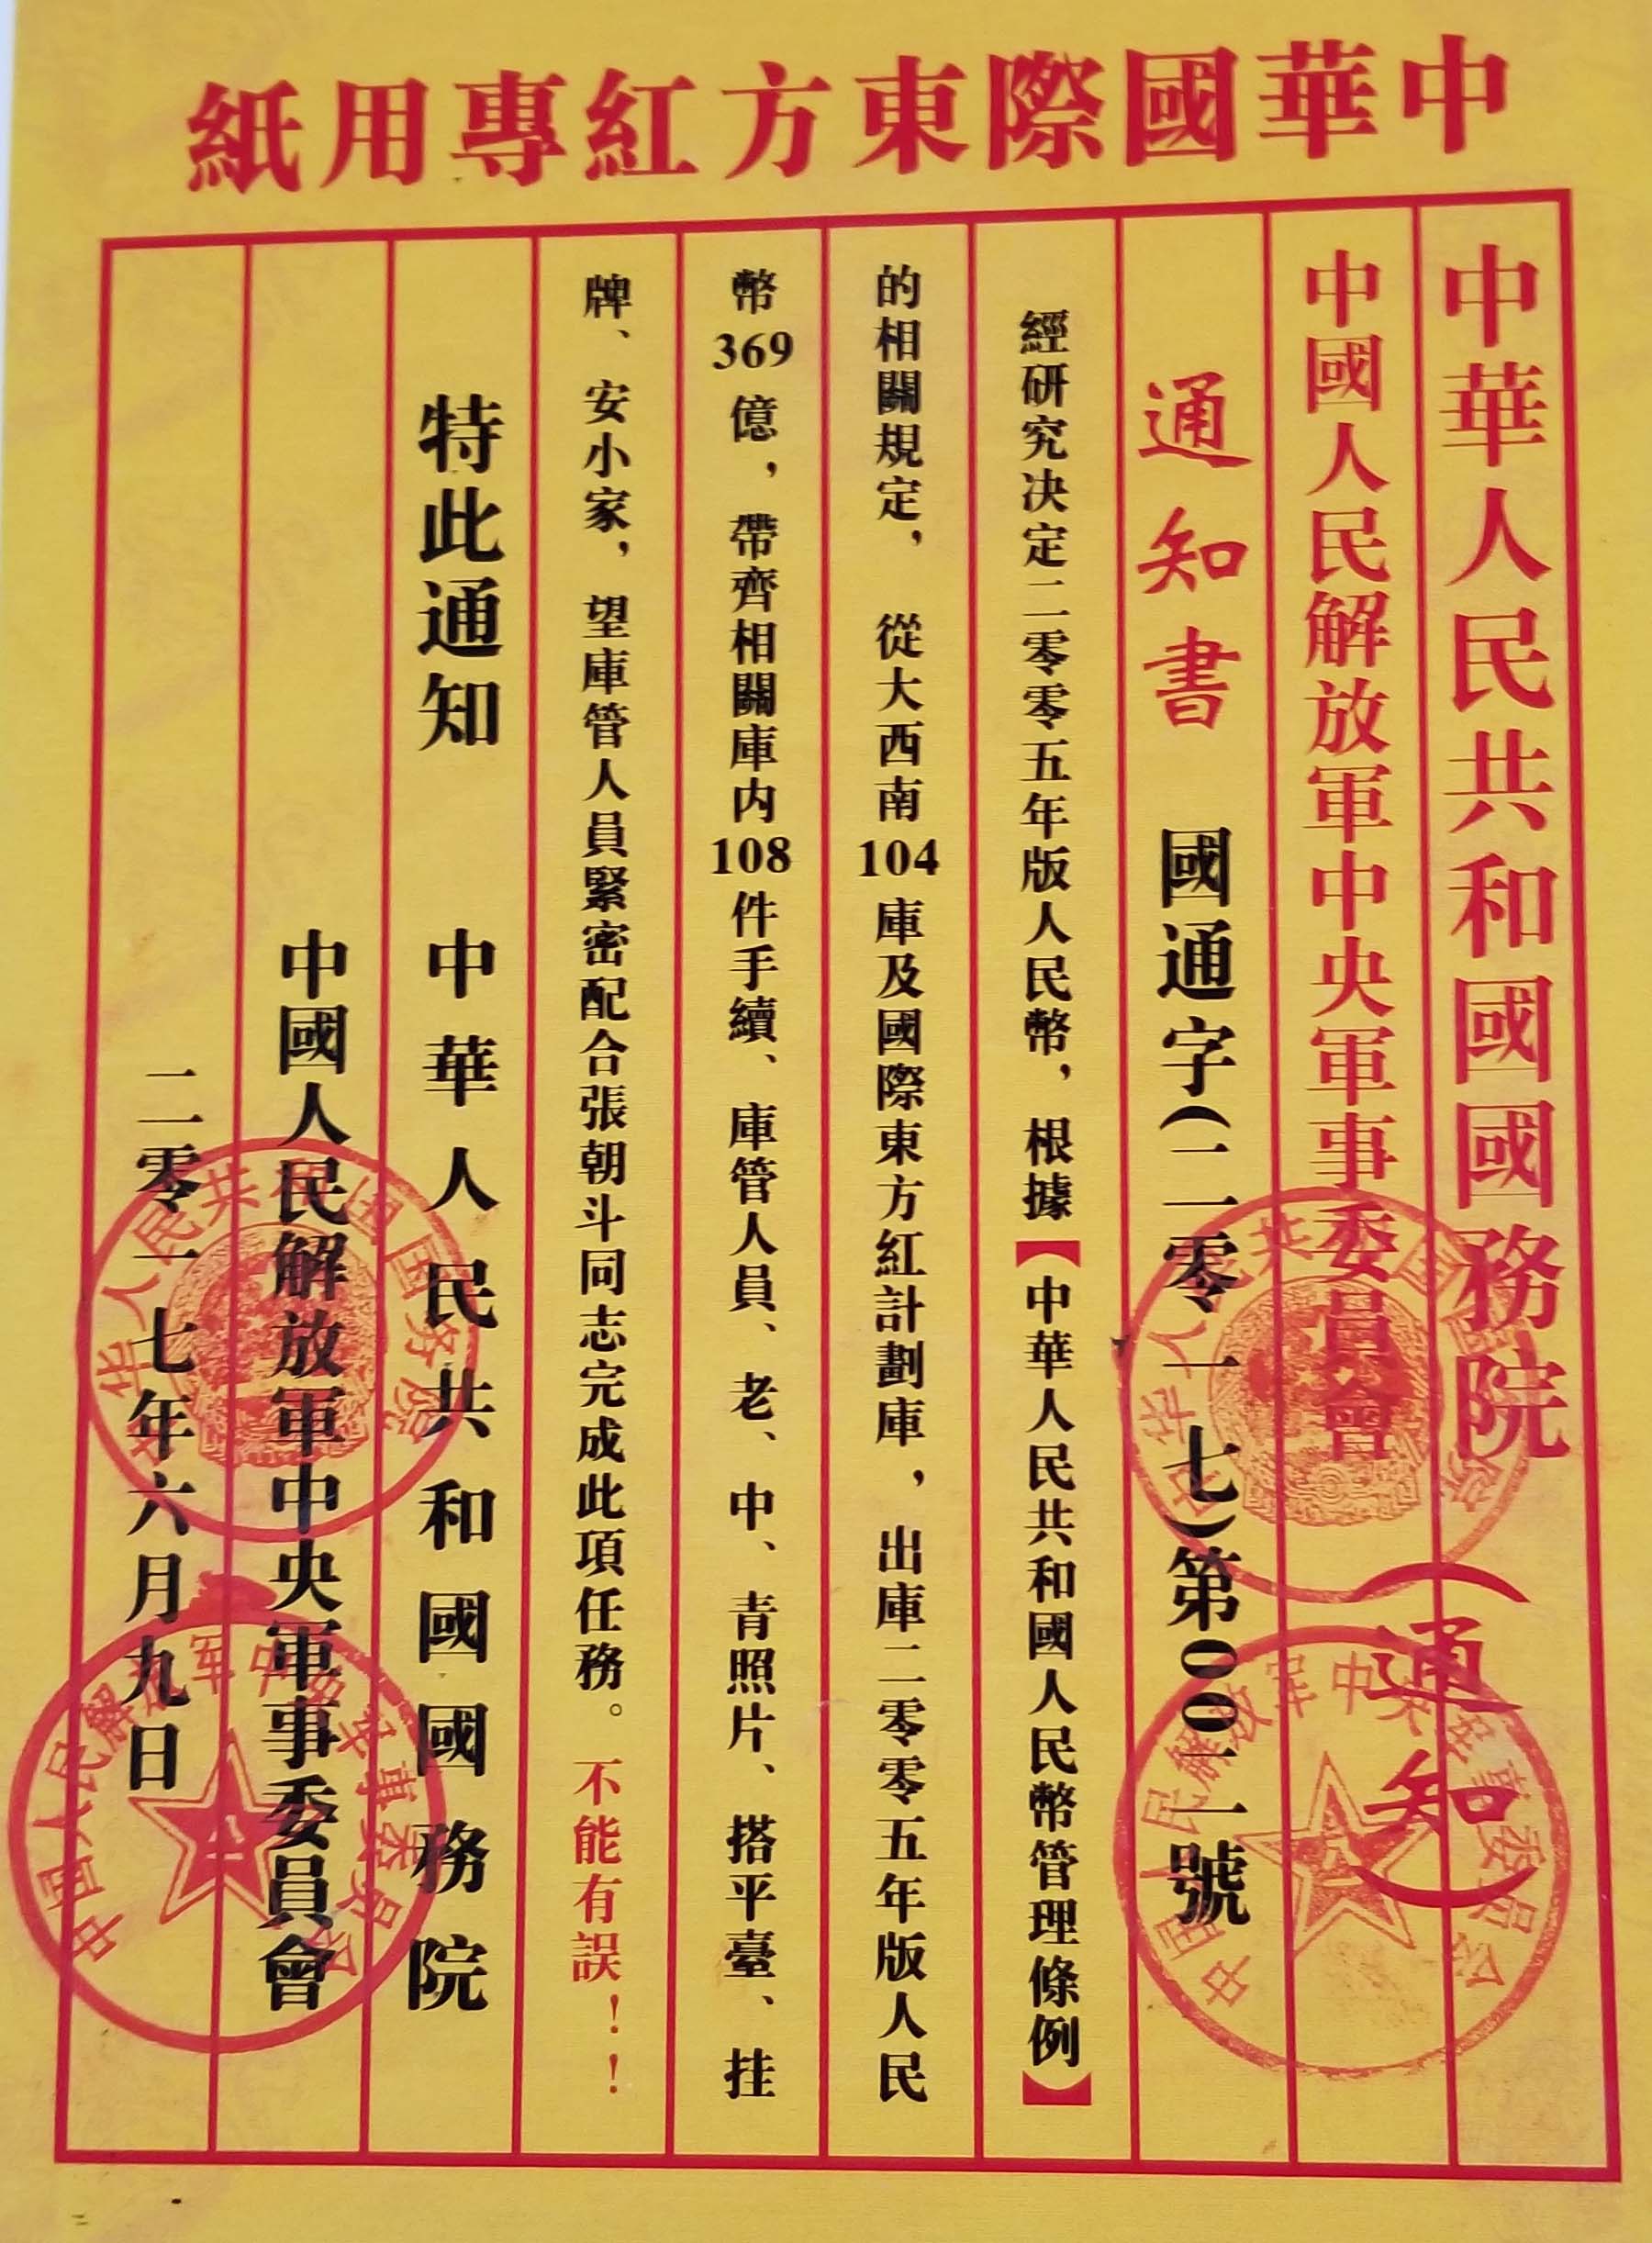 中華國際東方紅專用紙
中華人民共和國國務院(通知)
中國人民解放軍中央軍事委員會
通知書 國通字(二零一七)第00二號
經研究決定二零零五年版人民幣，根據【中華人民共和國人民幣管理條例】
的相關規定，從大西南104庫及國際東方紅計劃庫，出庫二零零五年版人民
幣369億，帶齊相關庫内108件手續、庫管人員、老、中、青照片、搭平臺、挂
牌、安小家，望庫管人員緊密配合張朝斗同志完成此項任務。不能有誤！！
特此通知 中華人民共和國國務院
中國人民解放軍中央軍事委員會
二零一七年六月九日
中华人民共和国国务院
中国人民解放军中央军事委员会
中华人民共和国国务院
中国人民解放军中央军事委员会